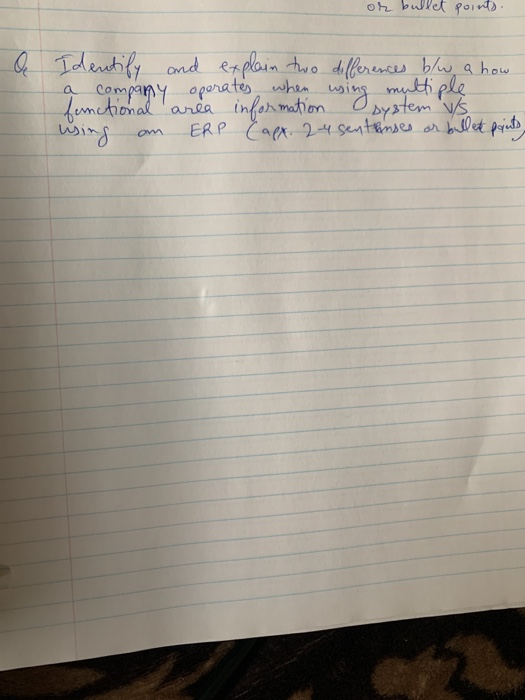 or bullet points.
Q Identify and explain two differences b/w a how
a company operates when using multiple
functional area information system V/S
using an ERP (apx. 2-4 sentenses or bullet points)